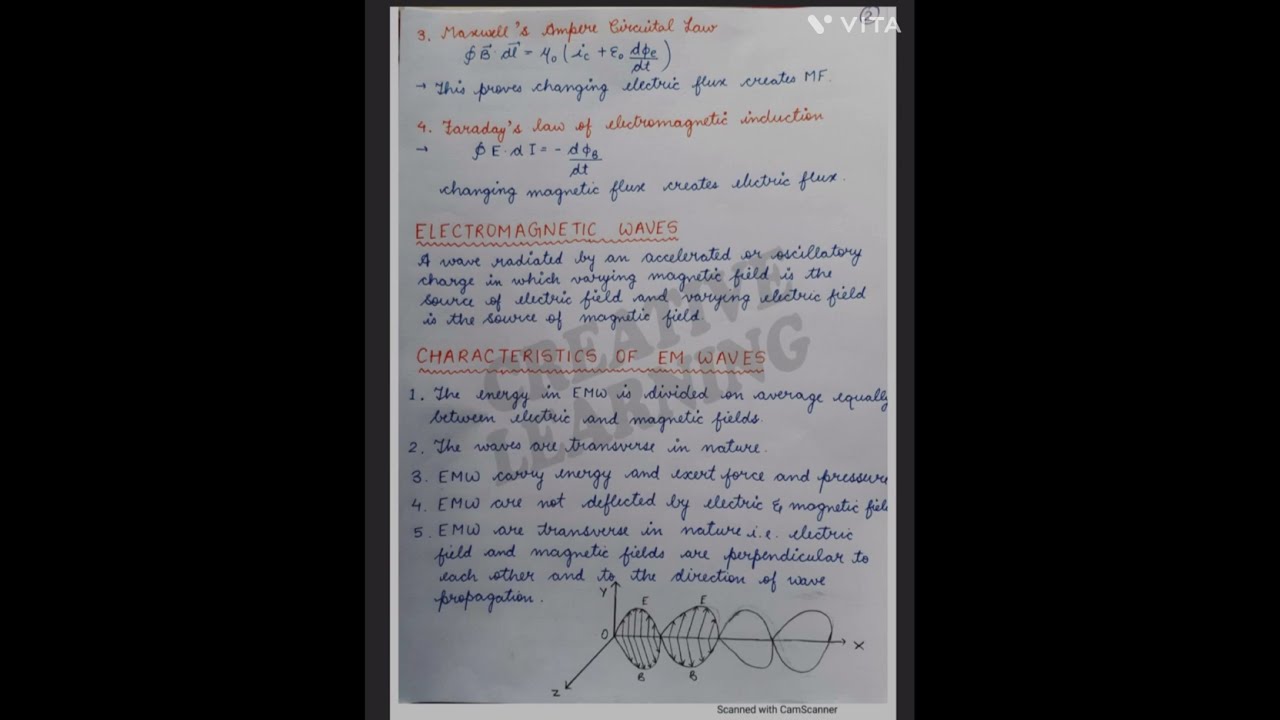 2
VITA
3. Maxwell's Ampere Circuital Law
∮ B⃗. dl⃗ = μ₀ ( i꜀ + ε₀ dϕₑ/dt )
→ This proves changing electric flux creates MF.
4. Faraday's law of electromagnetic induction
→ ∮ E. d I = - dϕ_B/dt
changing magnetic flux creates electric flux.
ELECTROMAGNETIC WAVES
A wave radiated by an accelerated or oscillatory
charge in which varying magnetic field is the
source of electric field and varying electric field
is the source of magnetic field.
CREATIVE
LEARNING
CHARACTERISTICS OF EM WAVES
1. The energy in EMW is divided on average equally
between electric and magnetic fields.
2. The waves are transverse in nature.
3. EMW carry energy and exert force and pressure
4. EMW are not deflected by electric & magnetic fiel
5. EMW are transverse in nature i.e. electric
field and magnetic fields are perpendicular to
each other and to the direction of wave
propagation.
Y
E E
O X
B B
Z
Scanned with CamScanner